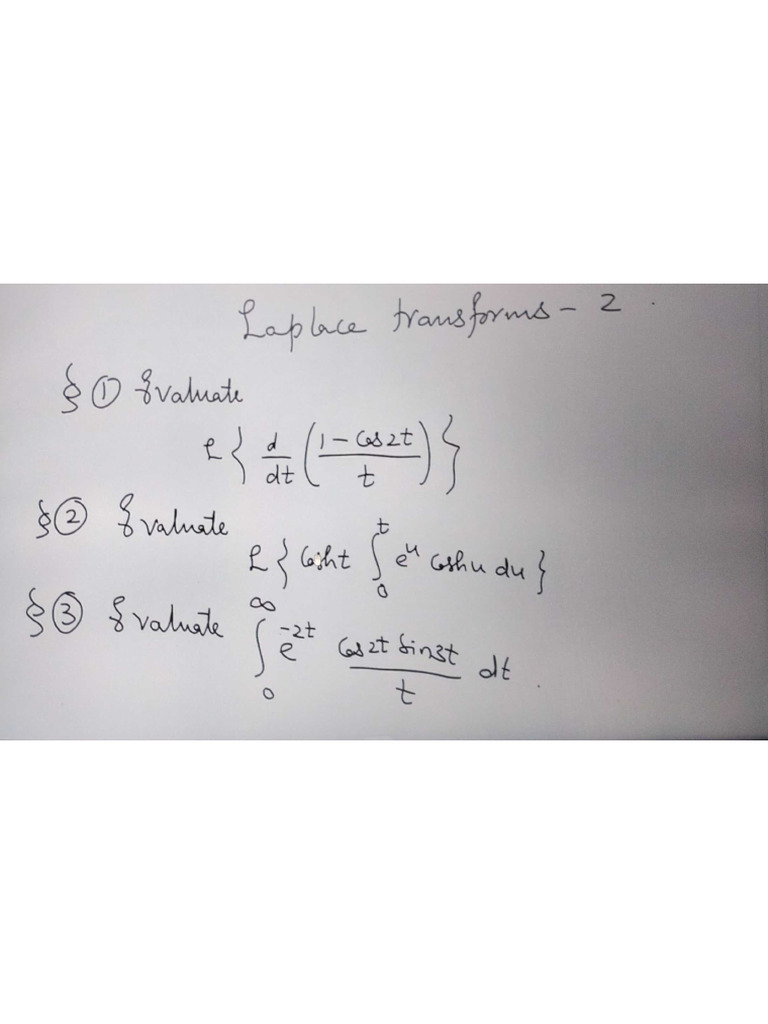 Laplace transforms - 2.
§ ① Evaluate
L { d/dt ( (1 - cos2t)/t ) }
§ ② Evaluate
L { cosht ∫₀ᵗ eᵘ coshu du }
§ ③ Evaluate ∫₀^∞ e^(-2t) (cos2t sin3t)/t dt.